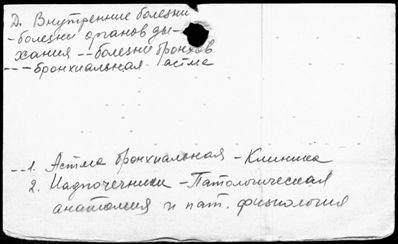 Д. Внутренние болезни
-болезни органов ды-
хания --болезни бронхов
---бронхиальная астма
--1. Астма бронхиальная - Клиника
2. Надпочечники - Патологическая
анатомия и пат. физиология